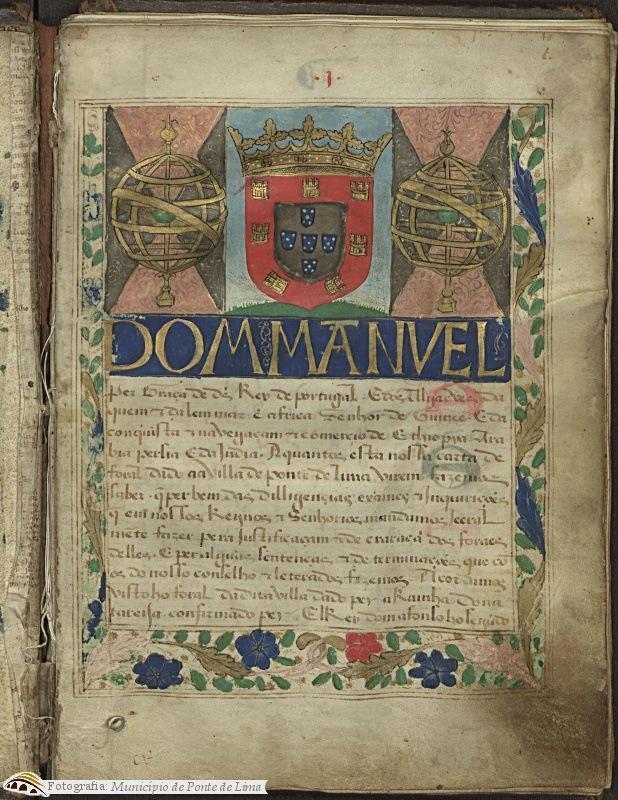 ·1·
DOM MANVEL
Per Graça de ds Rey de portugal. E dos Algarves da
quem & dalem mar. é africa Senhor de Guinee. E da
conquista & navegaçam & comercio de Ethiopya. Ara
bia persia E da India. A quantos esta nossa carta de
foral dado aa villa de ponte de lima virem fazemos
saber. q per bem das dilligençias exames & Inquirições
q em nossos Reynos & Senhorios mandamos geeral
mēte fazer pera justificaçam & decraraçã dos foraes
delles. E per alguũas sentenças & determinações que co
os do nosso conselho & leterados fezemos. Acordamos
visto ho foral da dita villa dado per a Rainha dona
tareisa confirmado per El Rey dom afonso ho segũdo
Fotografia: Município de Ponte de Lima